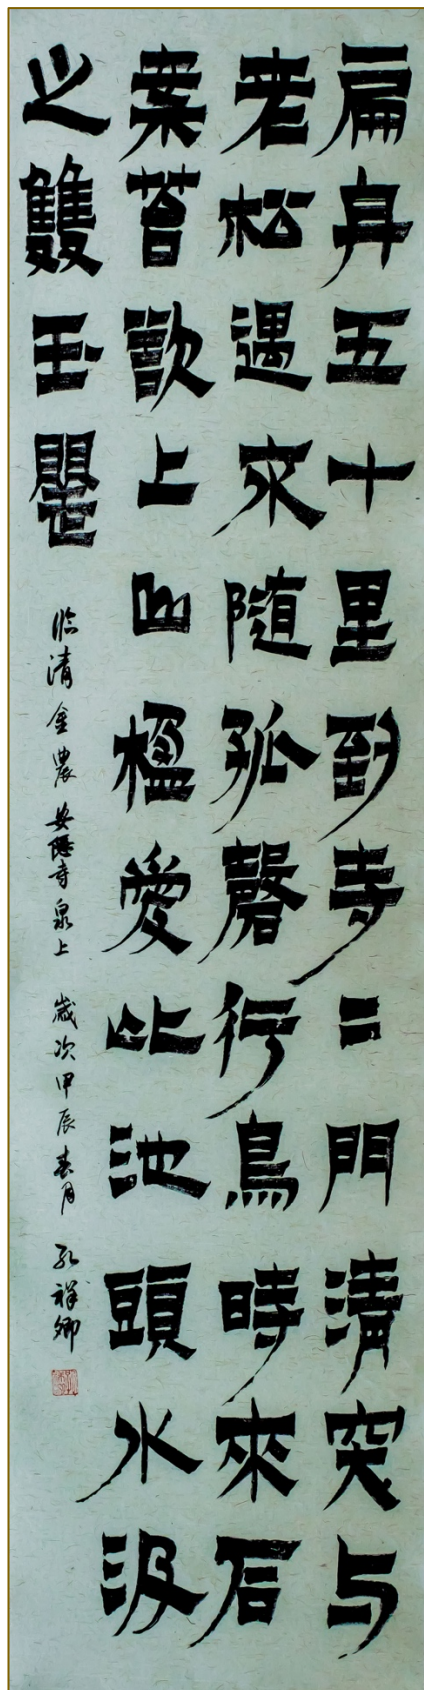 扁舟五十里到寺二門清突与
老松遇隨孤磬行鳥時來石
案苔欲上山楹愛此池頭水汲
之雙玉罌
临清金農安隱寺泉上 歲次甲辰春月 孔祥卿